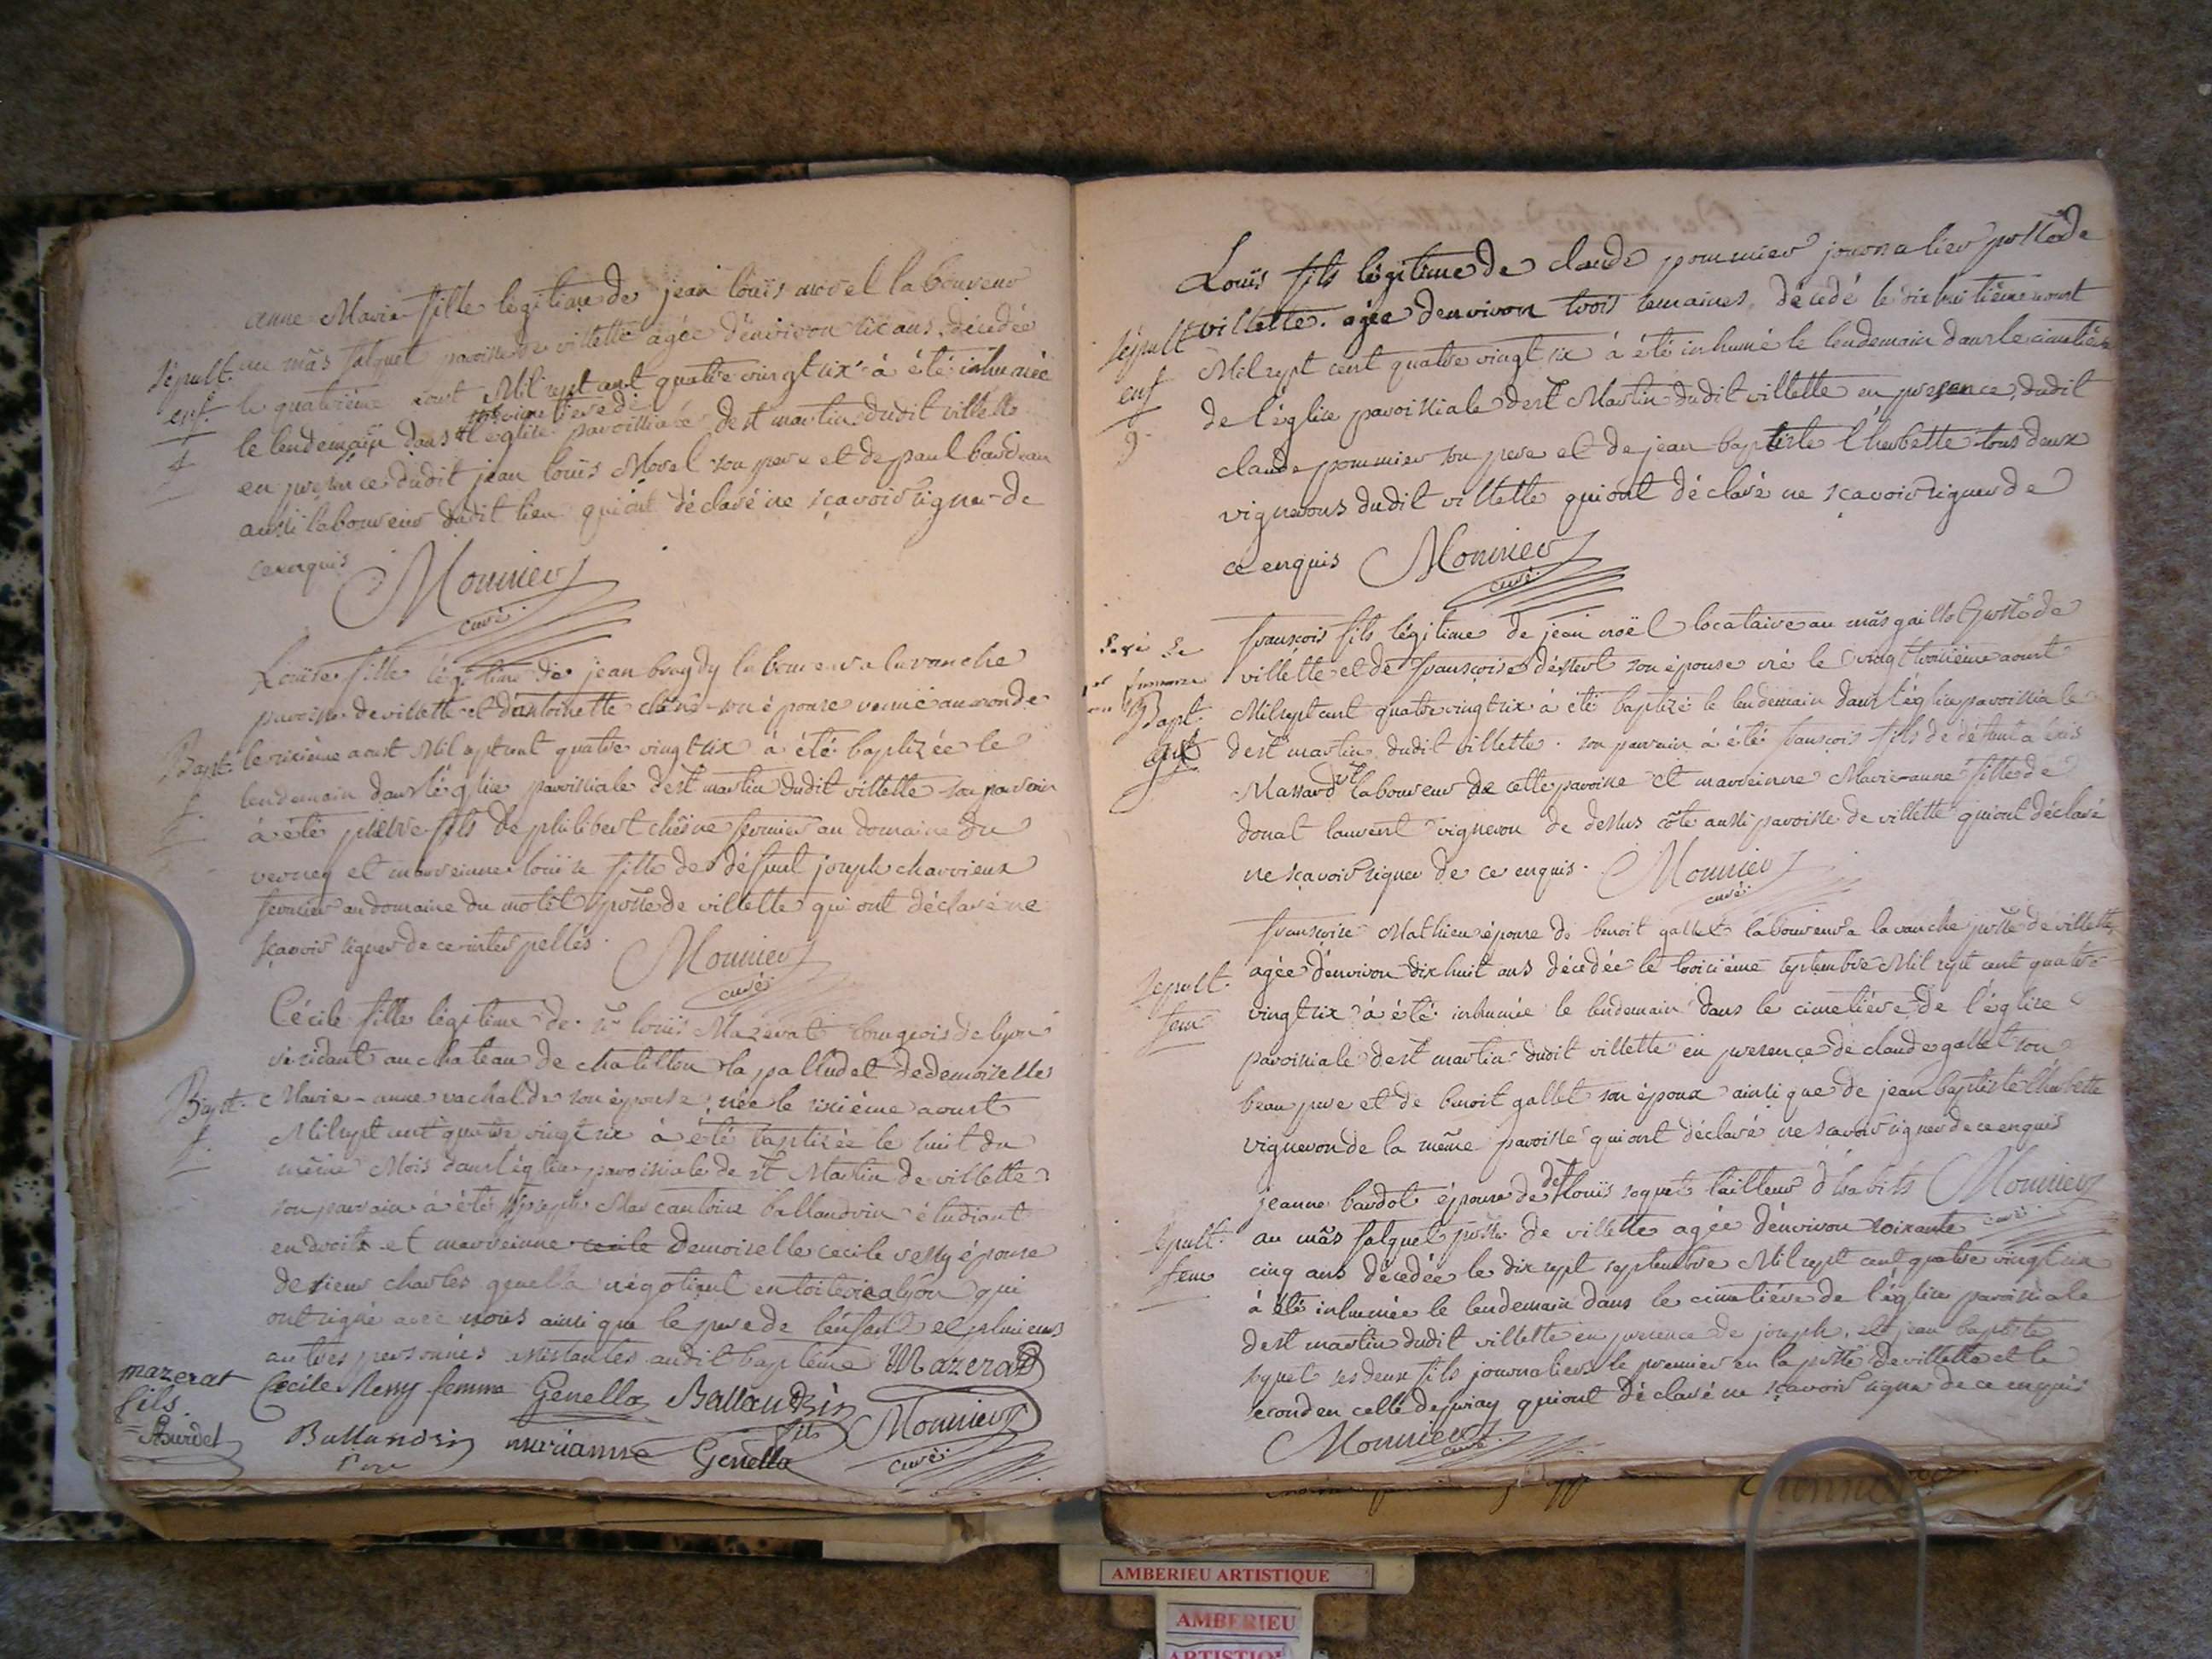 anne Marie fille légitime de jean loüis morel laboureur
au mâs falquet paroisse de villette agée d'environ six ans, décédée
Sépult.
enf.
f
le quatrième aout Mil sept cent quatre vingt six à été inhumée
le lendemain dans le cimetiere de l'église paroissiale de st martin dudit villette
en presence dudit jean loüis Morel son pere et de paul baudran
aussi laboureur dudit lieu qui ont déclaré ne sçavoir signer de
ce enquis Monnier
curé
Loüise fille légitime de jean bragdy laboureur a lavanche
paroisse de villette et d'antoinette chêne son épouse venüe au monde
Bapt.
f.
le sixième aoust Mil sept cent quatre vingt six à été baptizée le
lendemain dans l'église paroissiale de st martin dudit villette son parrain
à été pierre fils de philibert chêsne fermier au domaine du
verney et marreinne loüise fille de défunt joseph charvieux
fermier au domaine du motet psse de villette qui ont déclaré ne
sçavoir signer de ce interpellés. Monnier
curé
Cécile fille légitime de sr loüis Mazerat bourgeois de lyon
résidant au chateau de chatillon la pallud et de demoiselle
Bapt.
f.
Marie-anne vachalde son épouse, née le sixième aoust
Mil sept cent quatre vingt six à été baptizée le huit du
même Mois dans l'église paroissiale de st Martin de villette
son parrain à été joseph Marc antoine ballandrin étudiant
en droit et marreinne cecile Demoiselle cecile ressy épouse
de sieur charles genella négotiant en toilerie a lyon qui
ont signé avec nous ainsi que le pere de l'enfant et plusieurs
autres personnes assistantes audit baptême Mazerat
mazerat
fils
Cécile Ressy femme Genella Ballandrin
fils
Monnier
curé
Burdet Ballandrin marianne Genella
Loüis fils légitime de claude pommier journalier psse de
Sépult
enf
g
villette. agée d'environ trois semaines, décédé le dix huitième aout
Mil sept cent quatre vingt six à été inhumé le lendemain dans le cimetière
de l'église paroissiale de st Martin dudit villette en presence, dudit
claude pommier son pere et de jean baptiste l'herbette tous deux
vignerons dudit villette qui ont déclaré ne sçavoir signer de
ce enquis Monnier
curé
françois fils légitime de jean noël locataire au mâs gaillot psse de
villette et de françoise désert son épouse né le vingt troisième aoust
Bapt.
gar
Mil sept cent quatre vingt six à été baptizé le lendemain dans l'église paroissiale
de st martin dudit villette. son parrain à été françois fils de défunt a loüis
Massard vt laboureur de cette paroisse et marreinne Marie-anne fille de
donat laurent vigneron de dessus côte aussi paroisse de villette qui ont déclaré
ne sçavoir signer de ce enquis. Monnier
curé
françoise Mathieu épouse de benoit gallet laboureur a lavanche psse de villette,
Sepult.
fem
agée d'environ dix huit ans décédée le troisième septembre Mil sept cent quatre
vingt six à été inhumée le lendemain dans le cimetière de l'église
paroissiale de st martin dudit villette en presence de claude gallet son
beau pere et de benoit gallet son époux ainsi que de jean baptiste l'herbette
vigneron de la même paroisse qui ont déclaré ne sçavoir signer de ce enquis
jeanne bardot épouse de deft loüis soquet tailleur d'habits Monnier
curé
Sepult.
fem
au mâs falquet psse de villette agée d'environ soixante
cinq ans décédée le dix sept septembre Mil sept cent quatre vingt six
à été inhumée le lendemain dans le cimetière de l'église paroissiale
de st martin dudit villette en presence de joseph, et jean baptiste
soquet ses deux fils journaliers le premier en la psse de villette et le
second en celle de priay qui ont déclaré ne sçavoir signer de ce enquis
Monnier
curé
AMBERIEU ARTISTIQUE
AMBERIEU
ARTISTIQUE